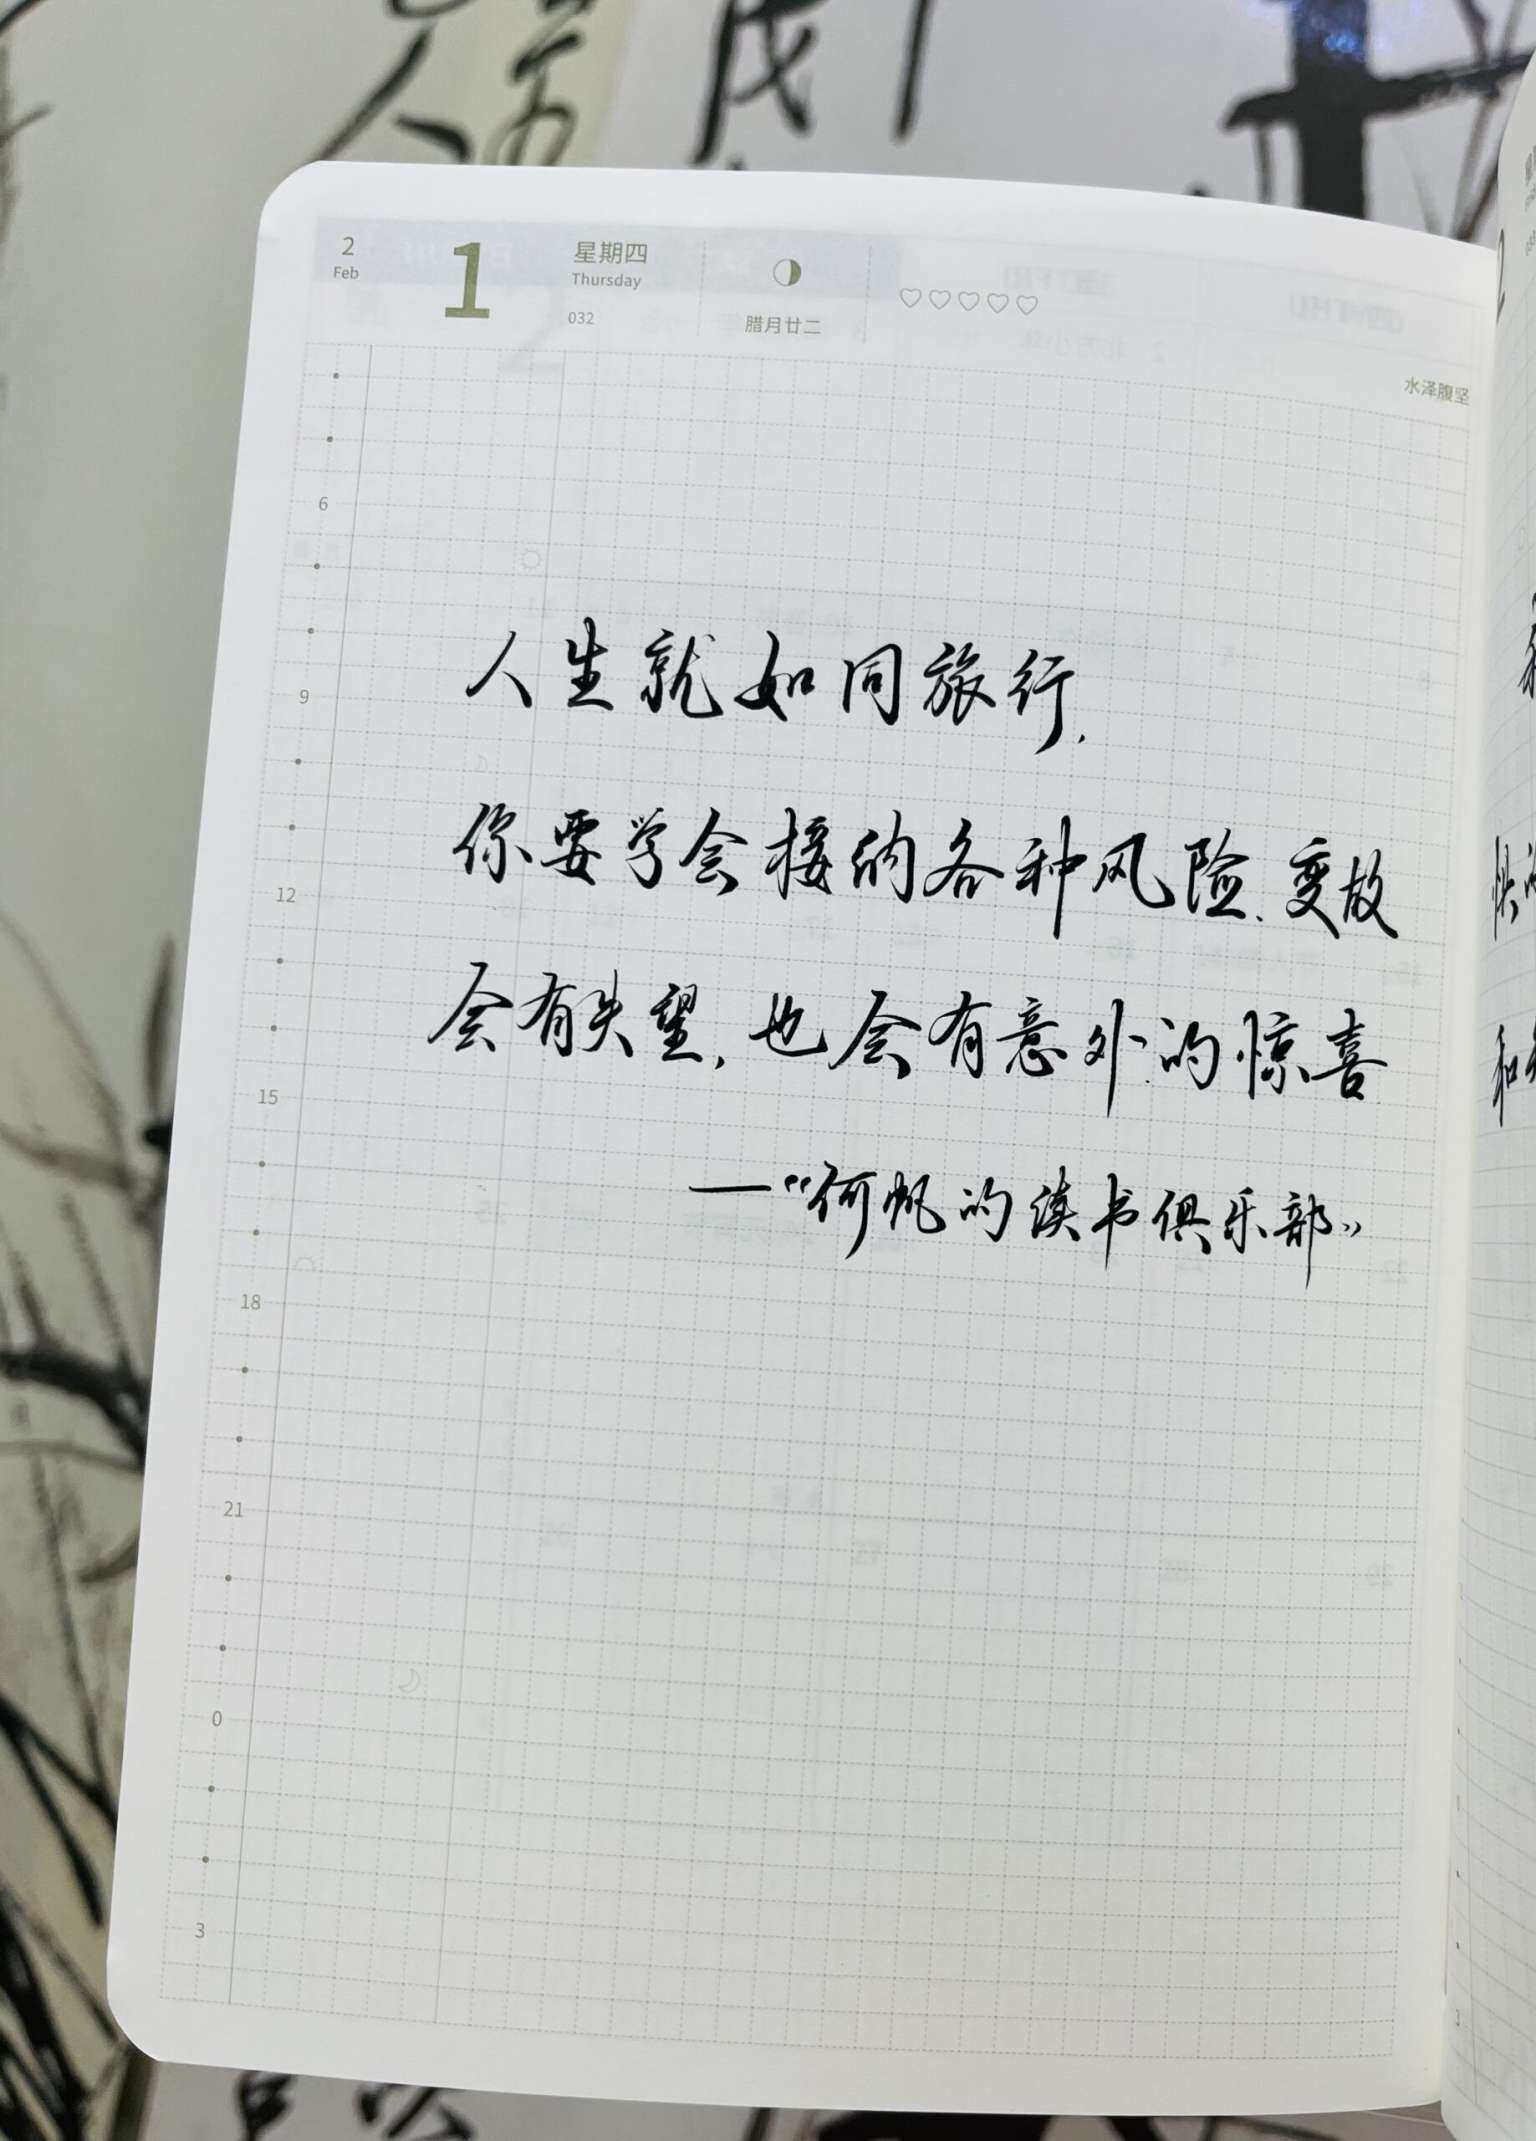 2
Feb
1
星期四
Thursday
032
腊月廿二
水泽腹坚
6
9
12
15
18
21
0
3
人生就如同旅行.
你要学会接的各种风险.变故
会有失望,也会有意外的惊喜
——“何帆的读书俱乐部”